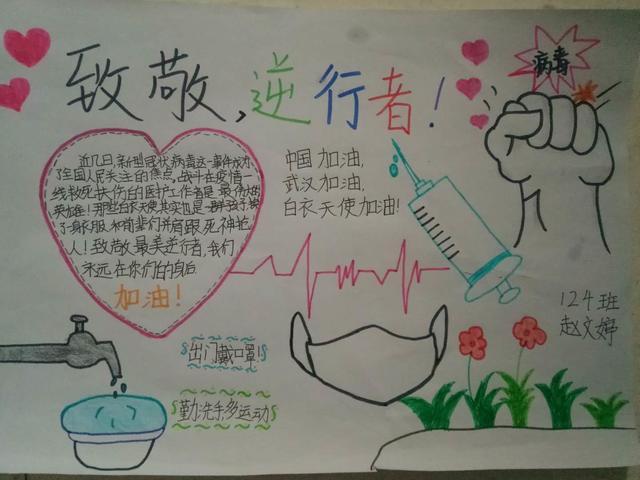 致敬,逆行者!
病毒
近几日,新型冠状病毒这一事件成为
了全国人民关注的焦点,战斗在疫情一
线救死扶伤的医护工作者是最伟大的
英雄!那些白衣天使其实也是一群孩子换
了身衣服,和前辈们并肩跟死神抢
人!致敬最美逆行者,我们
永远在你们的身后
加油!
中国加油,
武汉加油,
白衣天使加油!
124班
赵文婷
出门戴口罩!
勤洗手多运动